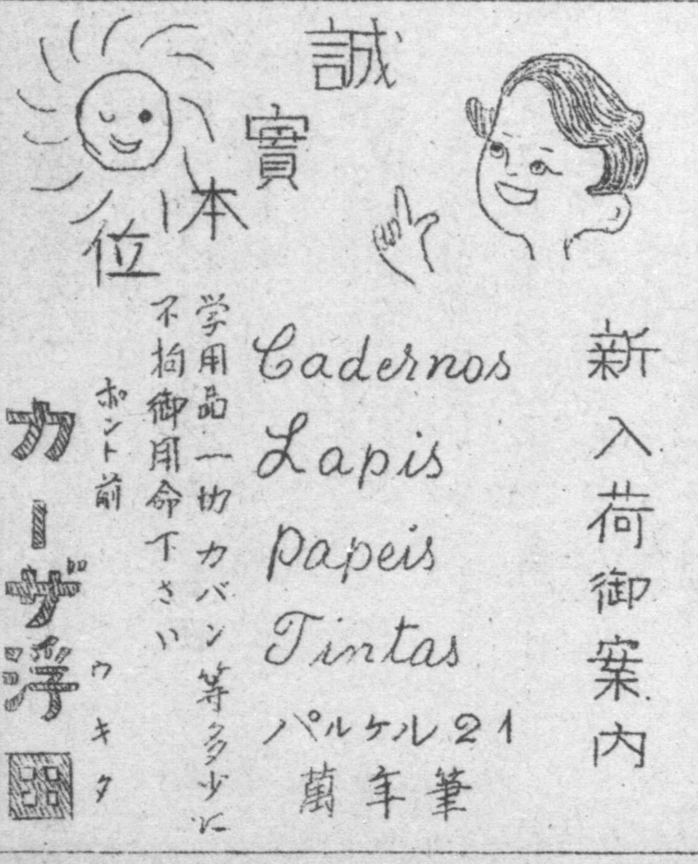 誠實本位
新入荷御案内
Cadernos
Lapis
Papeis
Tintas
パルケル21
萬年筆
学用品一切カバン等多少に
不拘御用命下さい
ポント前
カーザ浮田
ウキタ